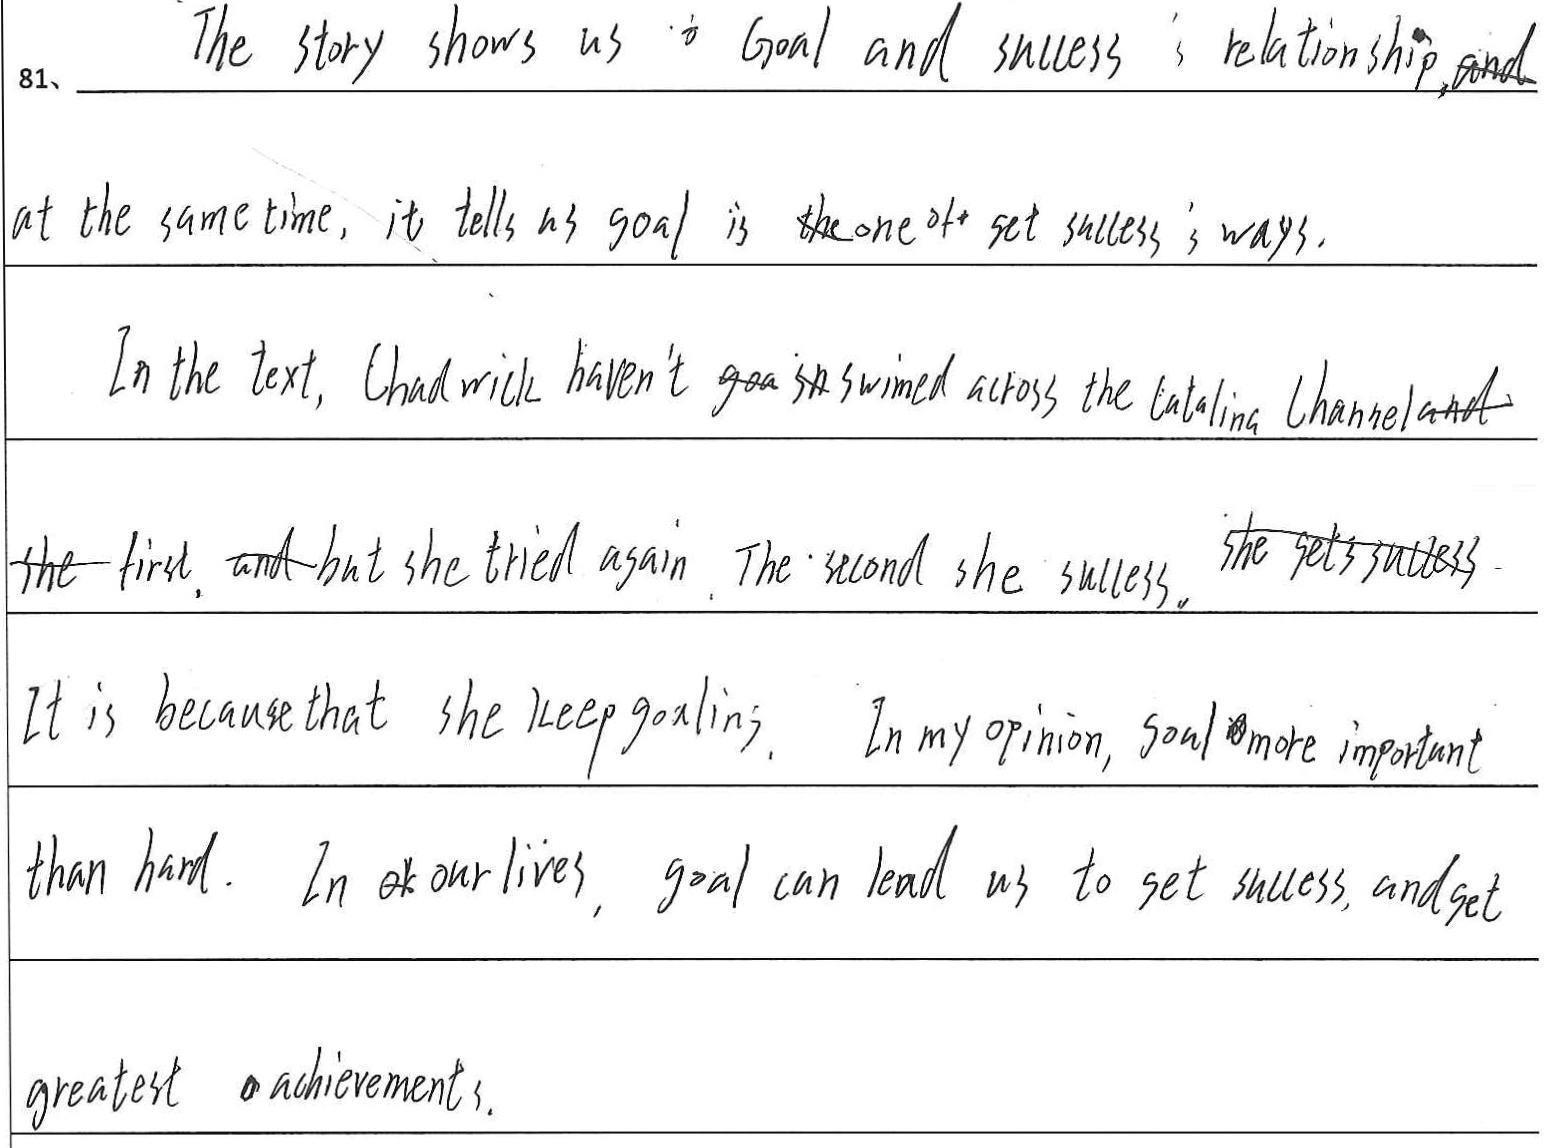 The story shows us Goal and success 's relationship, and
81、
at the same time, it tells us goal is the one of get success's ways.
In the text, Chadwick haven't goa in swimed across the Catalina Channel and
she first, and but she tried again. The second she success, she gets success
It is because that she keep goaling. In my opinion, goal more important
than hard. In our lives, goal can lead us to get success, and get
greatest achievements.